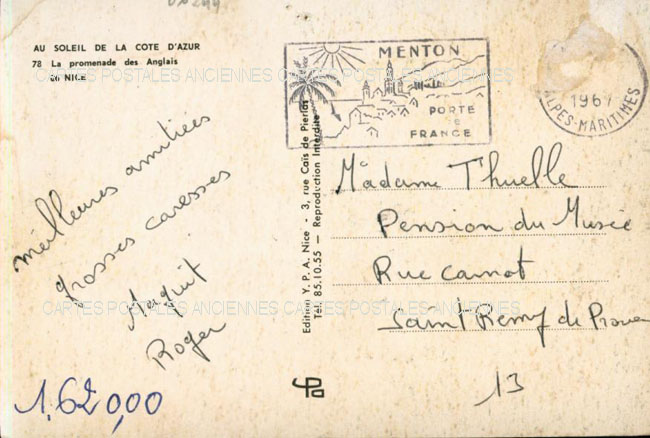 AU SOLEIL DE LA COTE D'AZUR
78 La promenade des Anglais
06 NICE
CARTES POSTALES ANCIENNES CARTES POSTALES ANCIENNES
meilleures amitiées
grosses caresses
Roger
1.620,00
Edition Y. P. A. Nice - 3, rue Cais de Pierlas
Tél. 85.10.55 — Reproduction Interdite
MENTON
PORTE
DE
FRANCE
1967
ALPES-MARITIMES
Madame Thuelle
Pension du Musée
Rue Carnot
CARTES POSTALES ANCIENNES CARTES POSTALES ANCIENNES
Saint Remy de Proven
13